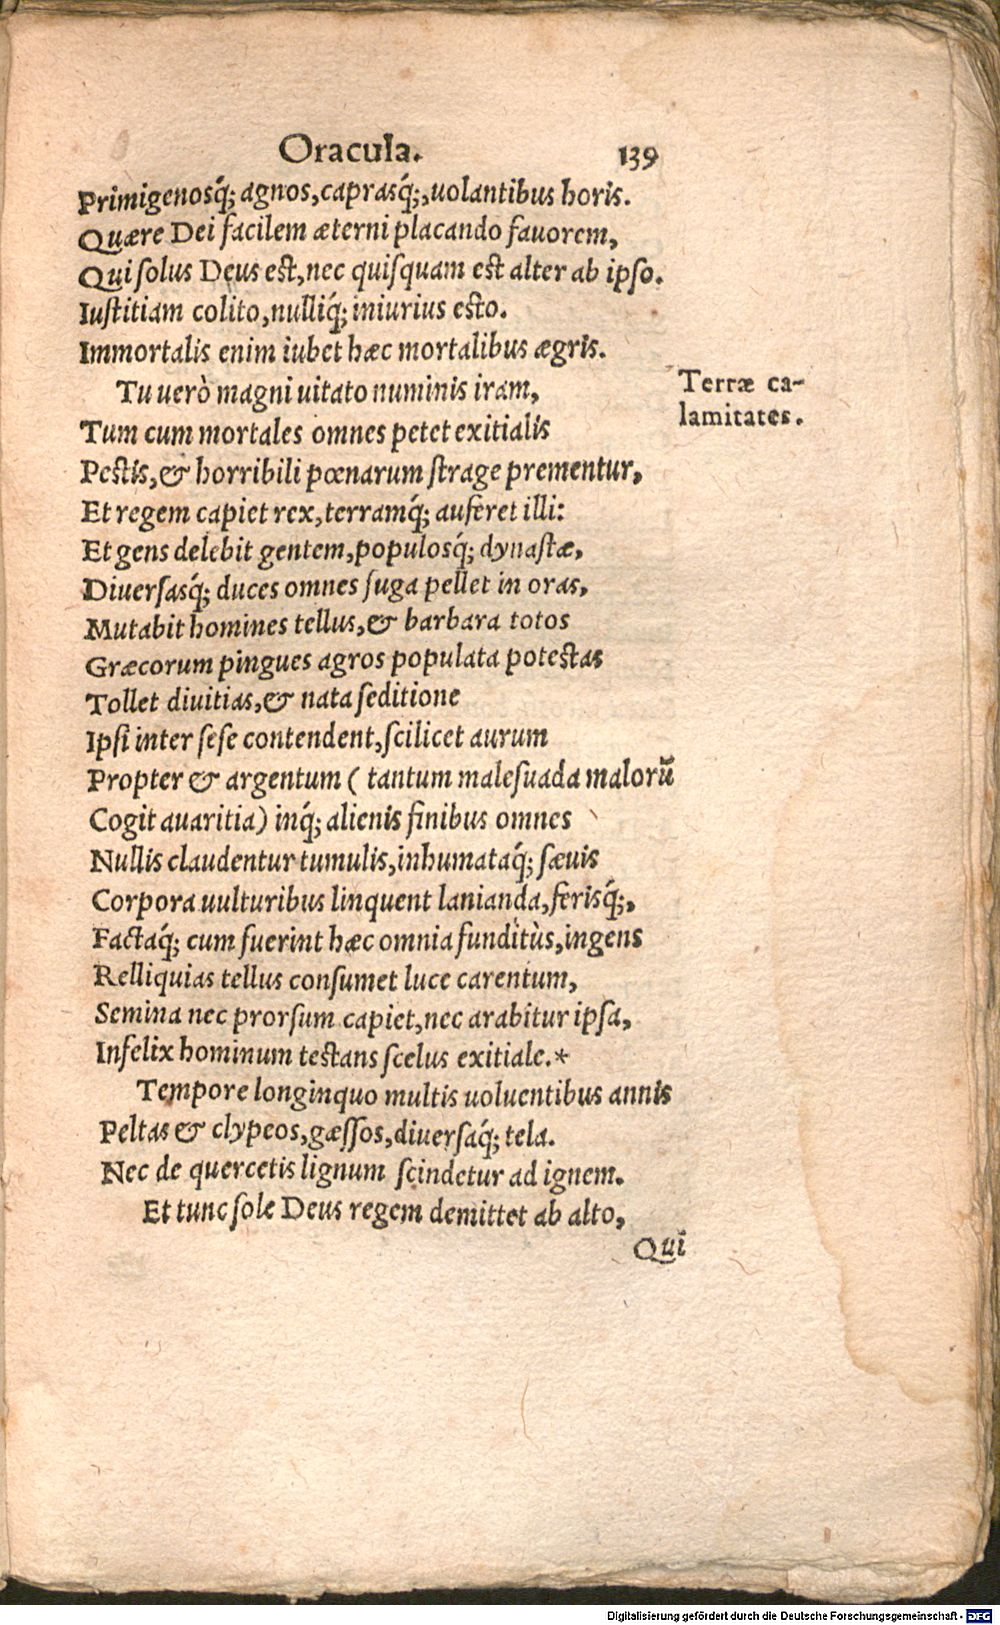 Oracula. 139
Primigenosq́; agnos, caprasq́;, uolantibus horis.
Quære Dei facilem æterni placando fauorem,
Qui solus Deus est, nec quisquam est alter ab ipso.
Iustitiam colito, nulliq́; iniurius esto.
Immortalis enim iubet hæc mortalibus ægris.
Tu uerò magni uitato numinis iram,
Terræ ca-
lamitates.
Tum cum mortales omnes petet exitialis
Pestis, & horribili pœnarum strage prementur,
Et regem capiet rex, terramq́; auferet illi:
Et gens delebit gentem, populosq́; dynastæ,
Diuersasq́; duces omnes fuga pellet in oras,
Mutabit homines tellus, & barbara totos
Græcorum pingues agros populata potestas
Tollet diuitias, & nata seditione
Ipsi inter sese contendent, scilicet aurum
Propter & argentum ( tantum malesuada malorū
Cogit auaritia) inq́; alienis finibus omnes
Nullis claudentur tumulis, inhumataq́; sæuis
Corpora uulturibus linquent lanianda, ferisq́;,
Factaq́; cum fuerint hæc omnia funditùs, ingens
Relliquias tellus consumet luce carentum,
Semina nec prorsum capiet, nec arabitur ipsa,
Infelix hominum testans scelus exitiale.*
Tempore longinquo multis uoluentibus annis
Peltas & clypeos, gæssos, diuersaq́; tela.
Nec de quercetis lignum scindetur ad ignem.
Et tunc sole Deus regem demittet ab alto,
Qui
Digitalisierung gefördert durch die Deutsche Forschungsgemeinschaft - DFG